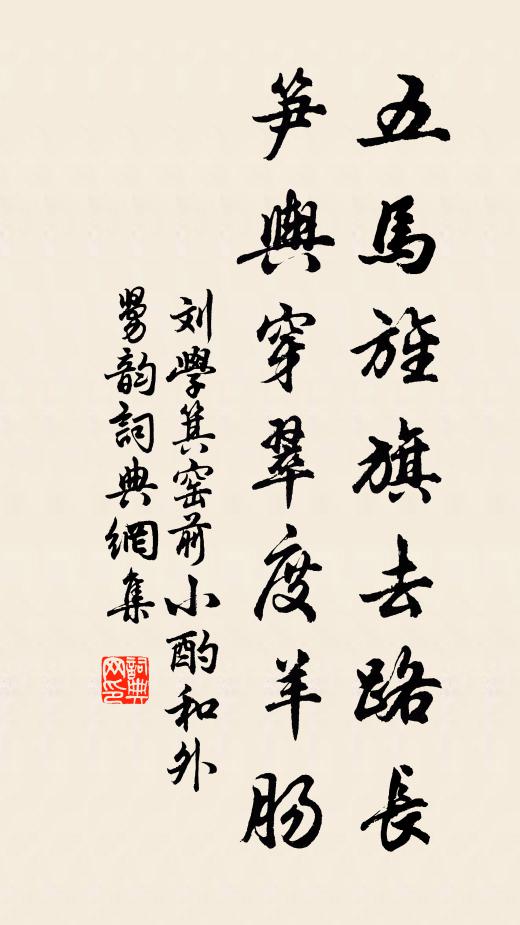 五馬旌旗去路長
笋輿穿翠度羊腸
刘學箕窑前小酌和外
舅韵詞典網集
詞典网印